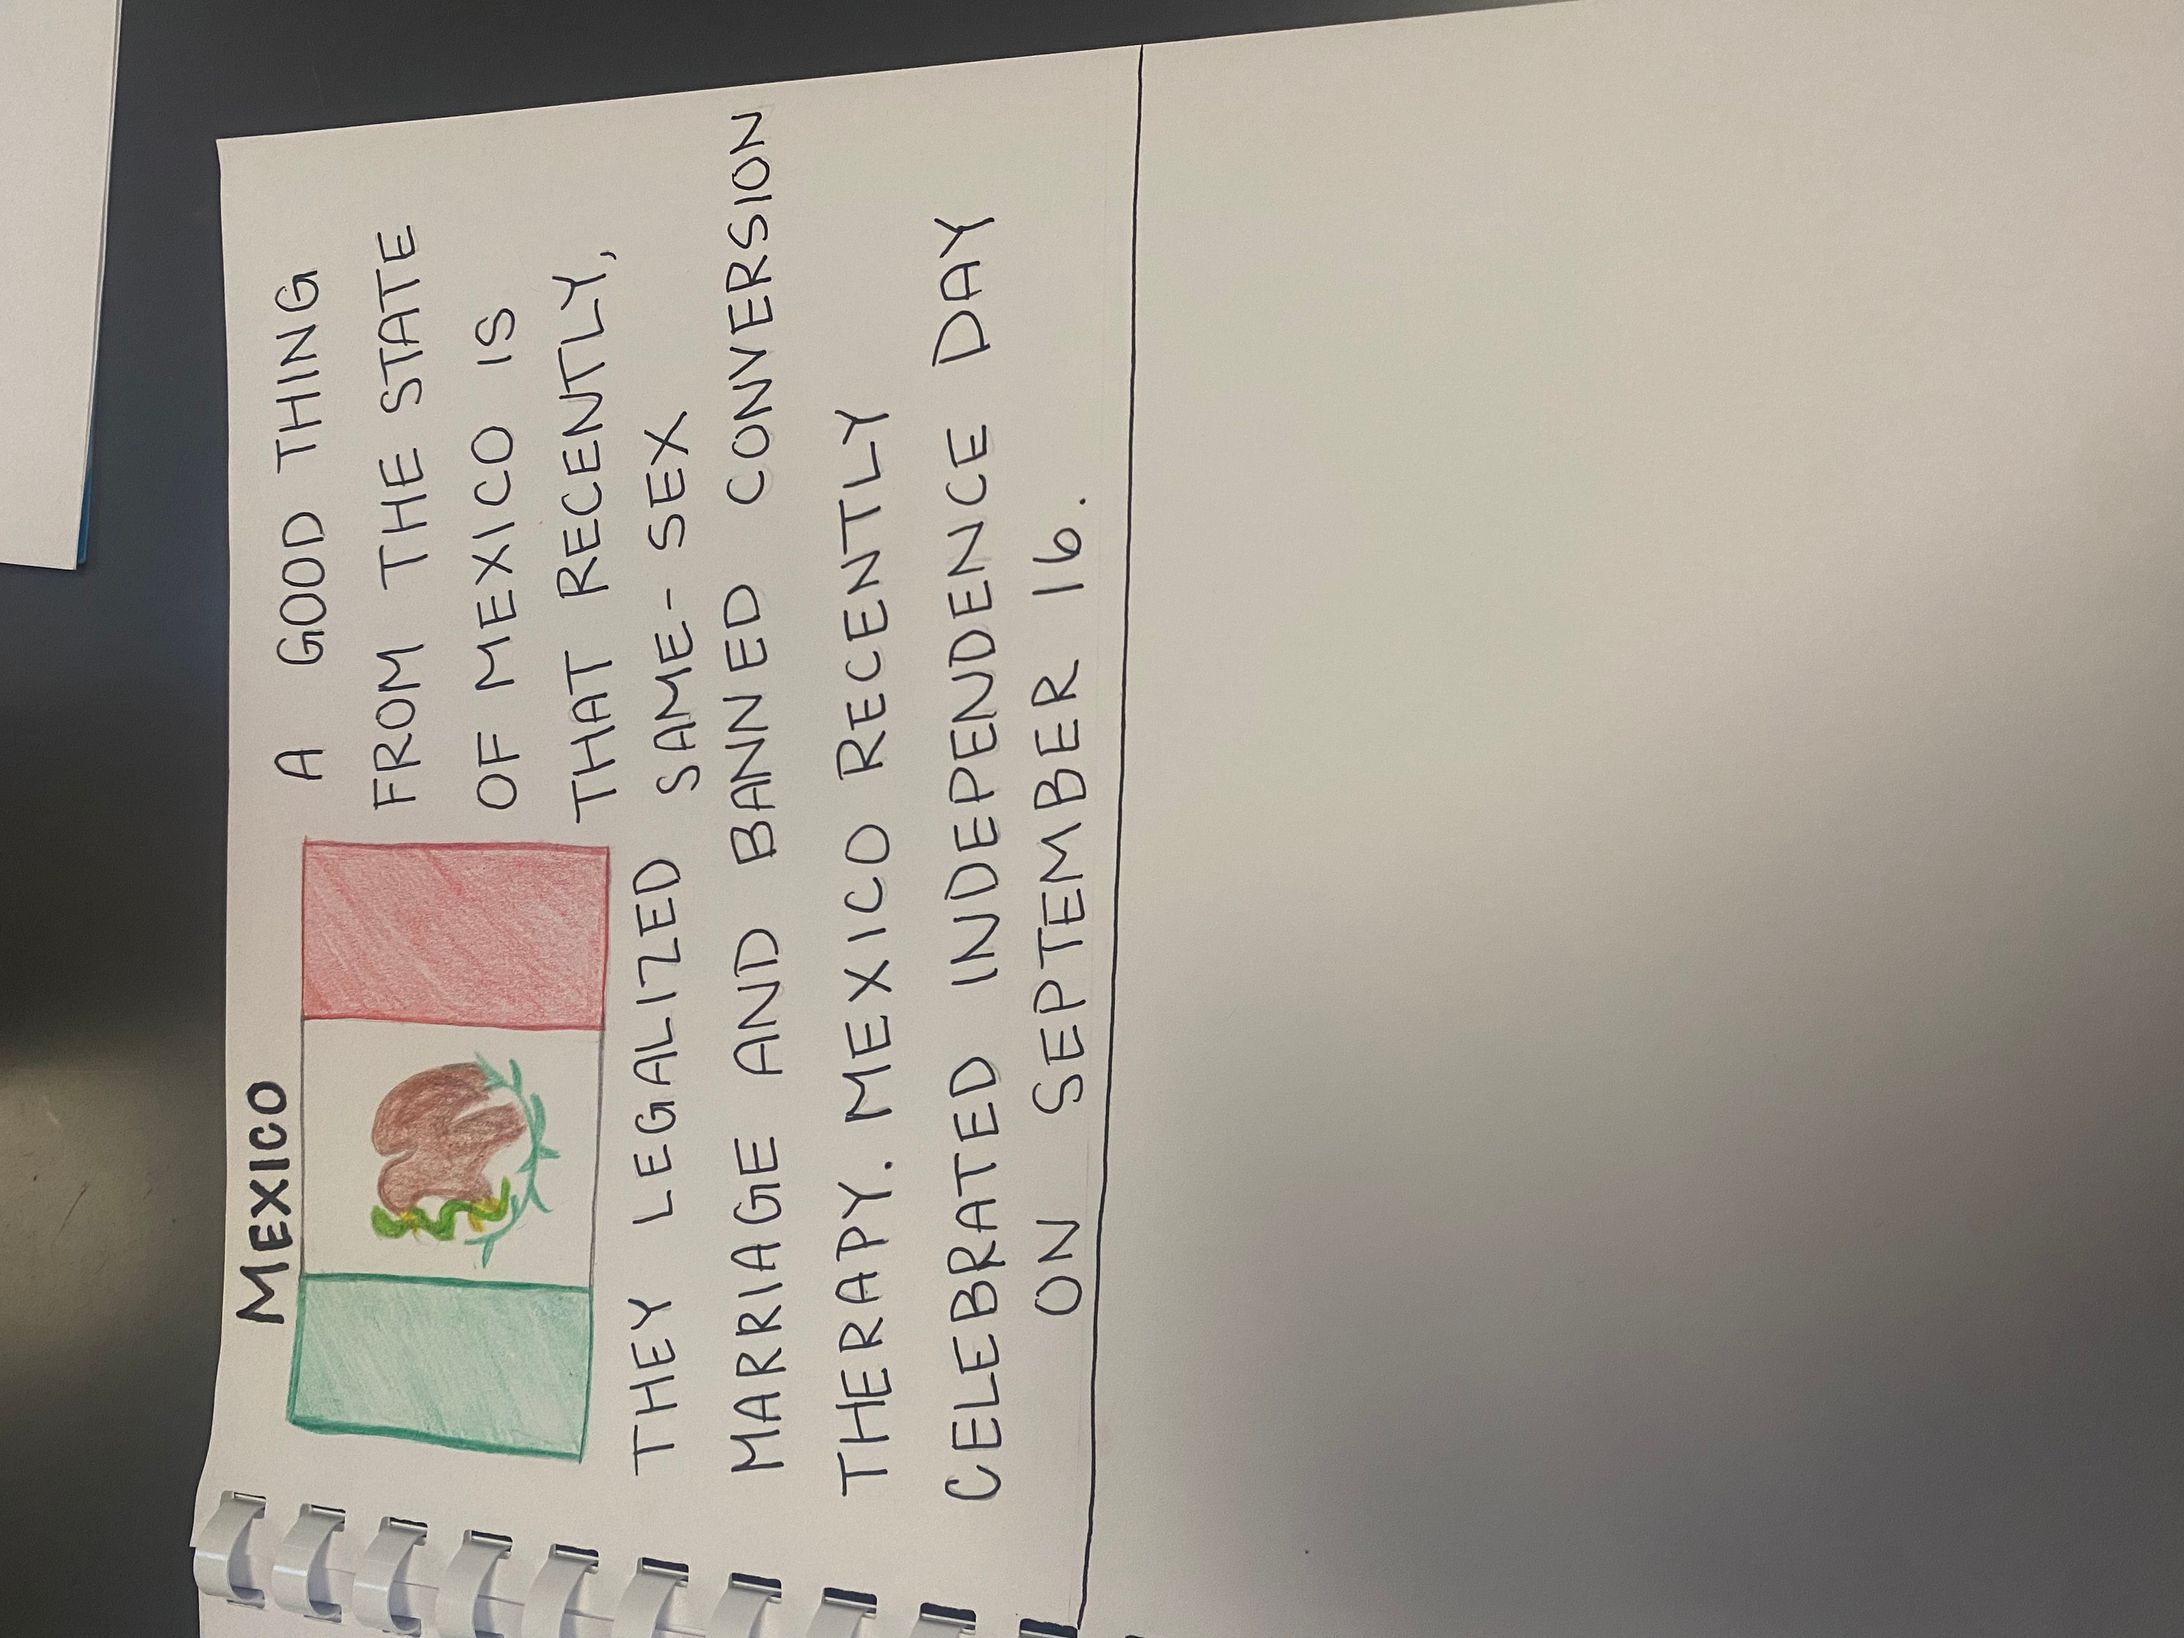 MEXICO
A GOOD THING
FROM THE STATE
OF MEXICO IS
THAT RECENTLY,
THEY LEGALIZED SAME-SEX
MARRIAGE AND BANNED CONVERSION
THERAPY. MEXICO RECENTLY
CELEBRATED INDEPENDENCE DAY
ON SEPTEMBER 16.